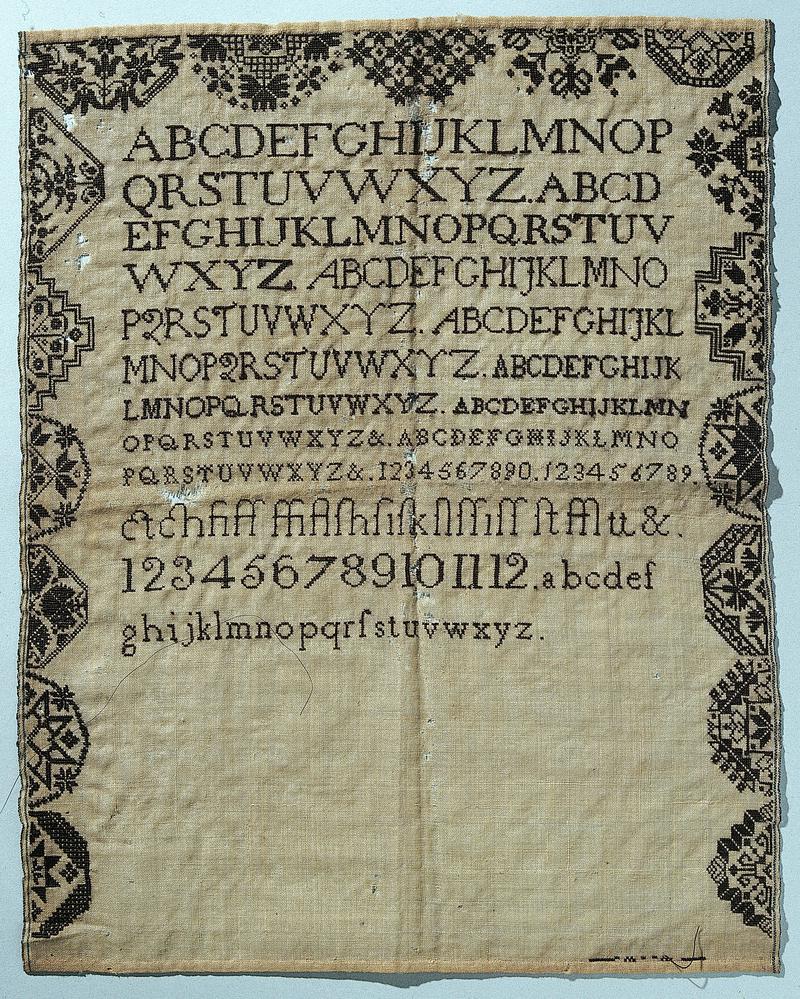 ABCDEFGHIJKLMNOP
QRSTUVWXYZ.ABCD
EFGHIJKLMNOPQRSTUV
WXYZ ABCDEFGHIJKLMNO
PQRSTUVWXYZ. ABCDEFGHIJKL
MNOPQRSTUVWXYZ. ABCDEFGHIJK
LMNOPQRSTUVWXYZ. ABCDEFGHIJKLMN
OPQRSTUVWXYZ&. ABCDEFGHIJKLMNO
PQRSTUVWXYZ&.1234567890.123456789.
ctchfiff ffiflſhſiſkſlſſiſſ ſt ffl tt &.
123456789101112.abcdef
ghijklmnopqrſstuvwxyz.